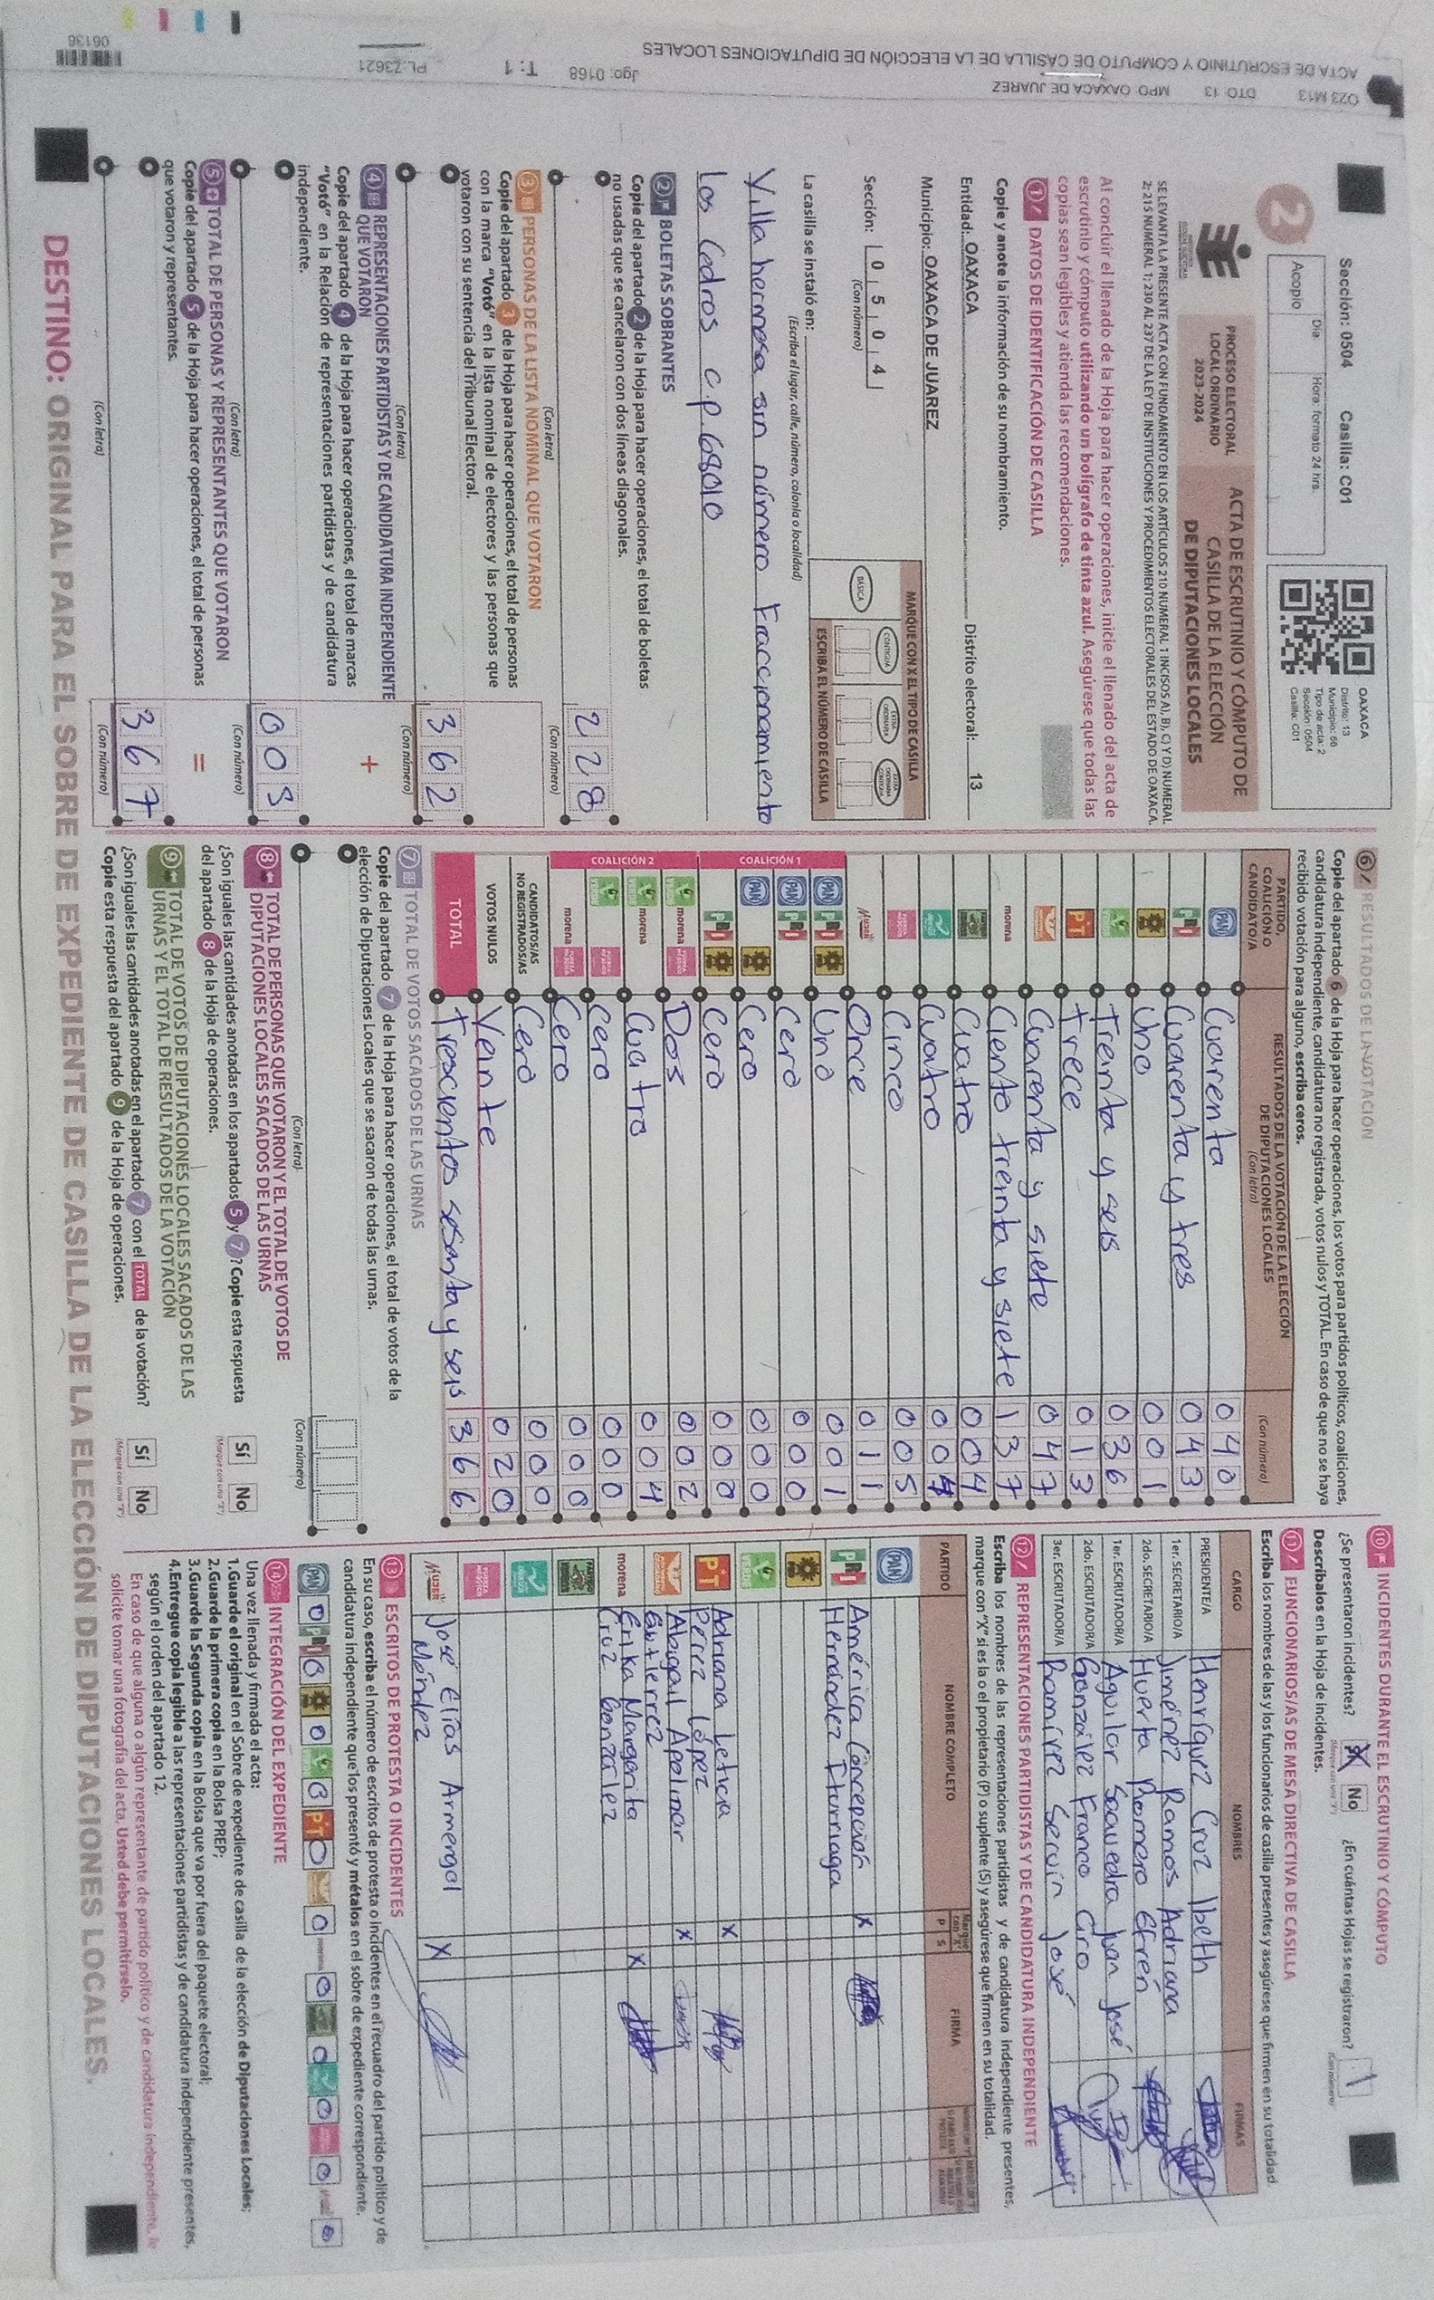 OZ3 M13 DTO: 13 MPO: OAXACA DE JUAREZ
ACTA DE ESCRUTINIO Y COMPUTO DE CASILLA DE LA ELECCIÓN DE DIPUTACIONES LOCALES
Jgo: 0168 T: 1 PL:Z3621
06136
Sección: 0504 Casilla: C01
2
Acopio
Día Hora: formato 24 hrs.
OAXACA
Distrito: 13
Municipio: 66
Tipo de acta: 2
Sección: 0504
Casilla: C01
PROCESO ELECTORAL
LOCAL ORDINARIO
2023-2024
ACTA DE ESCRUTINIO Y CÓMPUTO DE
CASILLA DE LA ELECCIÓN
DE DIPUTACIONES LOCALES
SE LEVANTA LA PRESENTE ACTA CON FUNDAMENTO EN LOS ARTÍCULOS 210 NUMERAL 1 INCISOS A), B), C) Y D) NUMERAL
2; 215 NUMERAL 1; 230 AL 237 DE LA LEY DE INSTITUCIONES Y PROCEDIMIENTOS ELECTORALES DEL ESTADO DE OAXACA.
Al concluir el llenado de la Hoja para hacer operaciones, inicie el llenado del acta de
escrutinio y cómputo utilizando un bolígrafo de tinta azul. Asegúrese que todas las
copias sean legibles y atienda las recomendaciones.
1 DATOS DE IDENTIFICACIÓN DE CASILLA
Copie y anote la información de su nombramiento.
Entidad: OAXACA Distrito electoral: 13
Municipio: OAXACA DE JUAREZ
Sección: 0 5 0 4
(Con número)
MARQUE CON X EL TIPO DE CASILLA
BÁSICA CONTIGUA
ESCRIBA EL NÚMERO DE CASILLA
La casilla se instaló en:
(Escriba el lugar, calle, número, colonia o localidad)
Villa hermosa sin número Fraccionamiento
los Cedros C.P. 68010
2 BOLETAS SOBRANTES
Copie del apartado 2 de la Hoja para hacer operaciones, el total de boletas
no usadas que se cancelaron con dos líneas diagonales.
228
(Con letra) (Con número)
3 PERSONAS DE LA LISTA NOMINAL QUE VOTARON
Copie del apartado 3 de la Hoja para hacer operaciones, el total de personas
con la marca "Votó" en la lista nominal de electores y las personas que
votaron con su sentencia del Tribunal Electoral.
362
(Con letra) (Con número)
4 REPRESENTACIONES PARTIDISTAS Y DE CANDIDATURA INDEPENDIENTE
QUE VOTARON
Copie del apartado 4 de la Hoja para hacer operaciones, el total de marcas
"Votó" en la Relación de representaciones partidistas y de candidatura
independiente.
+
005
(Con letra) (Con número)
5 TOTAL DE PERSONAS Y REPRESENTANTES QUE VOTARON
Copie del apartado 5 de la Hoja para hacer operaciones, el total de personas
que votaron y representantes.
=
367
(Con letra) (Con número)
6 RESULTADOS DE LA VOTACIÓN
Copie del apartado 6 de la Hoja para hacer operaciones, los votos para partidos políticos, coaliciones,
candidatura independiente, candidatura no registrada, votos nulos y TOTAL. En caso de que no se haya
recibido votación para alguno, escriba ceros.
PARTIDO,
COALICIÓN O
CANDIDATO/A
RESULTADOS DE LA VOTACIÓN DE LA ELECCIÓN
DE DIPUTACIONES LOCALES
(Con letra) (Con número)
PAN Cuarenta 040
PRI Cuarenta y tres 043
Uno 001
VERDE Treinta y seis 036
PT Trece 013
Cuarenta y siete 047
morena Ciento treinta y siete 137
Cuatro 004
Cuatro 004
Cinco 005
MUJER Once 011
COALICIÓN 1
PAN PRI Uno 001
PAN PRI Cero 000
PAN Cero 000
PRI Cero 000
COALICIÓN 2
VERDE morena Dos 002
VERDE morena Cuatro 004
VERDE Cero 000
morena Cero 000
CANDIDATOS/AS
NO REGISTRADOS/AS Cero 000
VOTOS NULOS Veinte 020
TOTAL Trescientos sesenta y seis 366
7 TOTAL DE VOTOS SACADOS DE LAS URNAS
Copie del apartado 7 de la Hoja para hacer operaciones, el total de votos de la
elección de Diputaciones Locales que se sacaron de todas las urnas.
(Con letra) (Con número)
8 TOTAL DE PERSONAS QUE VOTARON Y EL TOTAL DE VOTOS DE
DIPUTACIONES LOCALES SACADOS DE LAS URNAS
¿Son iguales las cantidades anotadas en los apartados 5 y 7? Copie esta respuesta
del apartado 8 de la Hoja de operaciones.
Sí No
9 TOTAL DE VOTOS DE DIPUTACIONES LOCALES SACADOS DE LAS
URNAS Y EL TOTAL DE RESULTADOS DE LA VOTACIÓN
¿Son iguales las cantidades anotadas en el apartado 7 con el TOTAL de la votación?
Copie esta respuesta del apartado 9 de la Hoja de operaciones.
Sí No
10 INCIDENTES DURANTE EL ESCRUTINIO Y CÓMPUTO
¿Se presentaron incidentes? Sí No ¿En cuántas Hojas se registraron? 1
Descríbalos en la Hoja de incidentes.
11 FUNCIONARIOS/AS DE MESA DIRECTIVA DE CASILLA
Escriba los nombres de las y los funcionarios de casilla presentes y asegúrese que firmen en su totalidad
CARGO NOMBRES FIRMAS
PRESIDENTE/A Henríquez Cruz Ibeth
1er. SECRETARIO/A Jiménez Ramos Adriana
2do. SECRETARIO/A Huerta Romero Efrén
1er. ESCRUTADOR/A Aguilar Saavedra Juan José
2do. ESCRUTADOR/A González Franco Ciro
3er. ESCRUTADOR/A Ramírez Servín José
12 REPRESENTACIONES PARTIDISTAS Y DE CANDIDATURA INDEPENDIENTE
Escriba los nombres de las representaciones partidistas y de candidatura independiente presentes,
marque con "X" si es la o el propietario (P) o suplente (S) y asegúrese que firmen en su totalidad.
PARTIDO NOMBRE COMPLETO P S FIRMA
PAN
PRI América Concepción X
Hernández Iturriaga
VERDE
PT Adriana Leticia X
Pérez López
Abigail Apolinar X
Gutierrez
morena Erika Margarita X
Cruz González
MUJER José Elías Armengol X
Méndez
13 ESCRITOS DE PROTESTA O INCIDENTES
En su caso, escriba el número de escritos de protesta o incidentes en el recuadro del partido político y de
candidatura independiente que los presentó y métalos en el sobre de expediente correspondiente.
PAN 0 PRI 0 0 0 PT 0 0 0 0 0 0 0
14 INTEGRACIÓN DEL EXPEDIENTE
Una vez llenada y firmada el acta:
1.Guarde el original en el Sobre de expediente de casilla de la elección de Diputaciones Locales;
2.Guarde la primera copia en la Bolsa PREP;
3.Guarde la Segunda copia en la Bolsa que va por fuera del paquete electoral;
4.Entregue copia legible a las representaciones partidistas y de candidatura independiente presentes,
según el orden del apartado 12.
En caso de que alguna o algún representante de partido político y de candidatura independiente, le
solicite tomar una fotografía del acta, Usted debe permitírselo.
DESTINO: ORIGINAL PARA EL SOBRE DE EXPEDIENTE DE CASILLA DE LA ELECCIÓN DE DIPUTACIONES LOCALES.